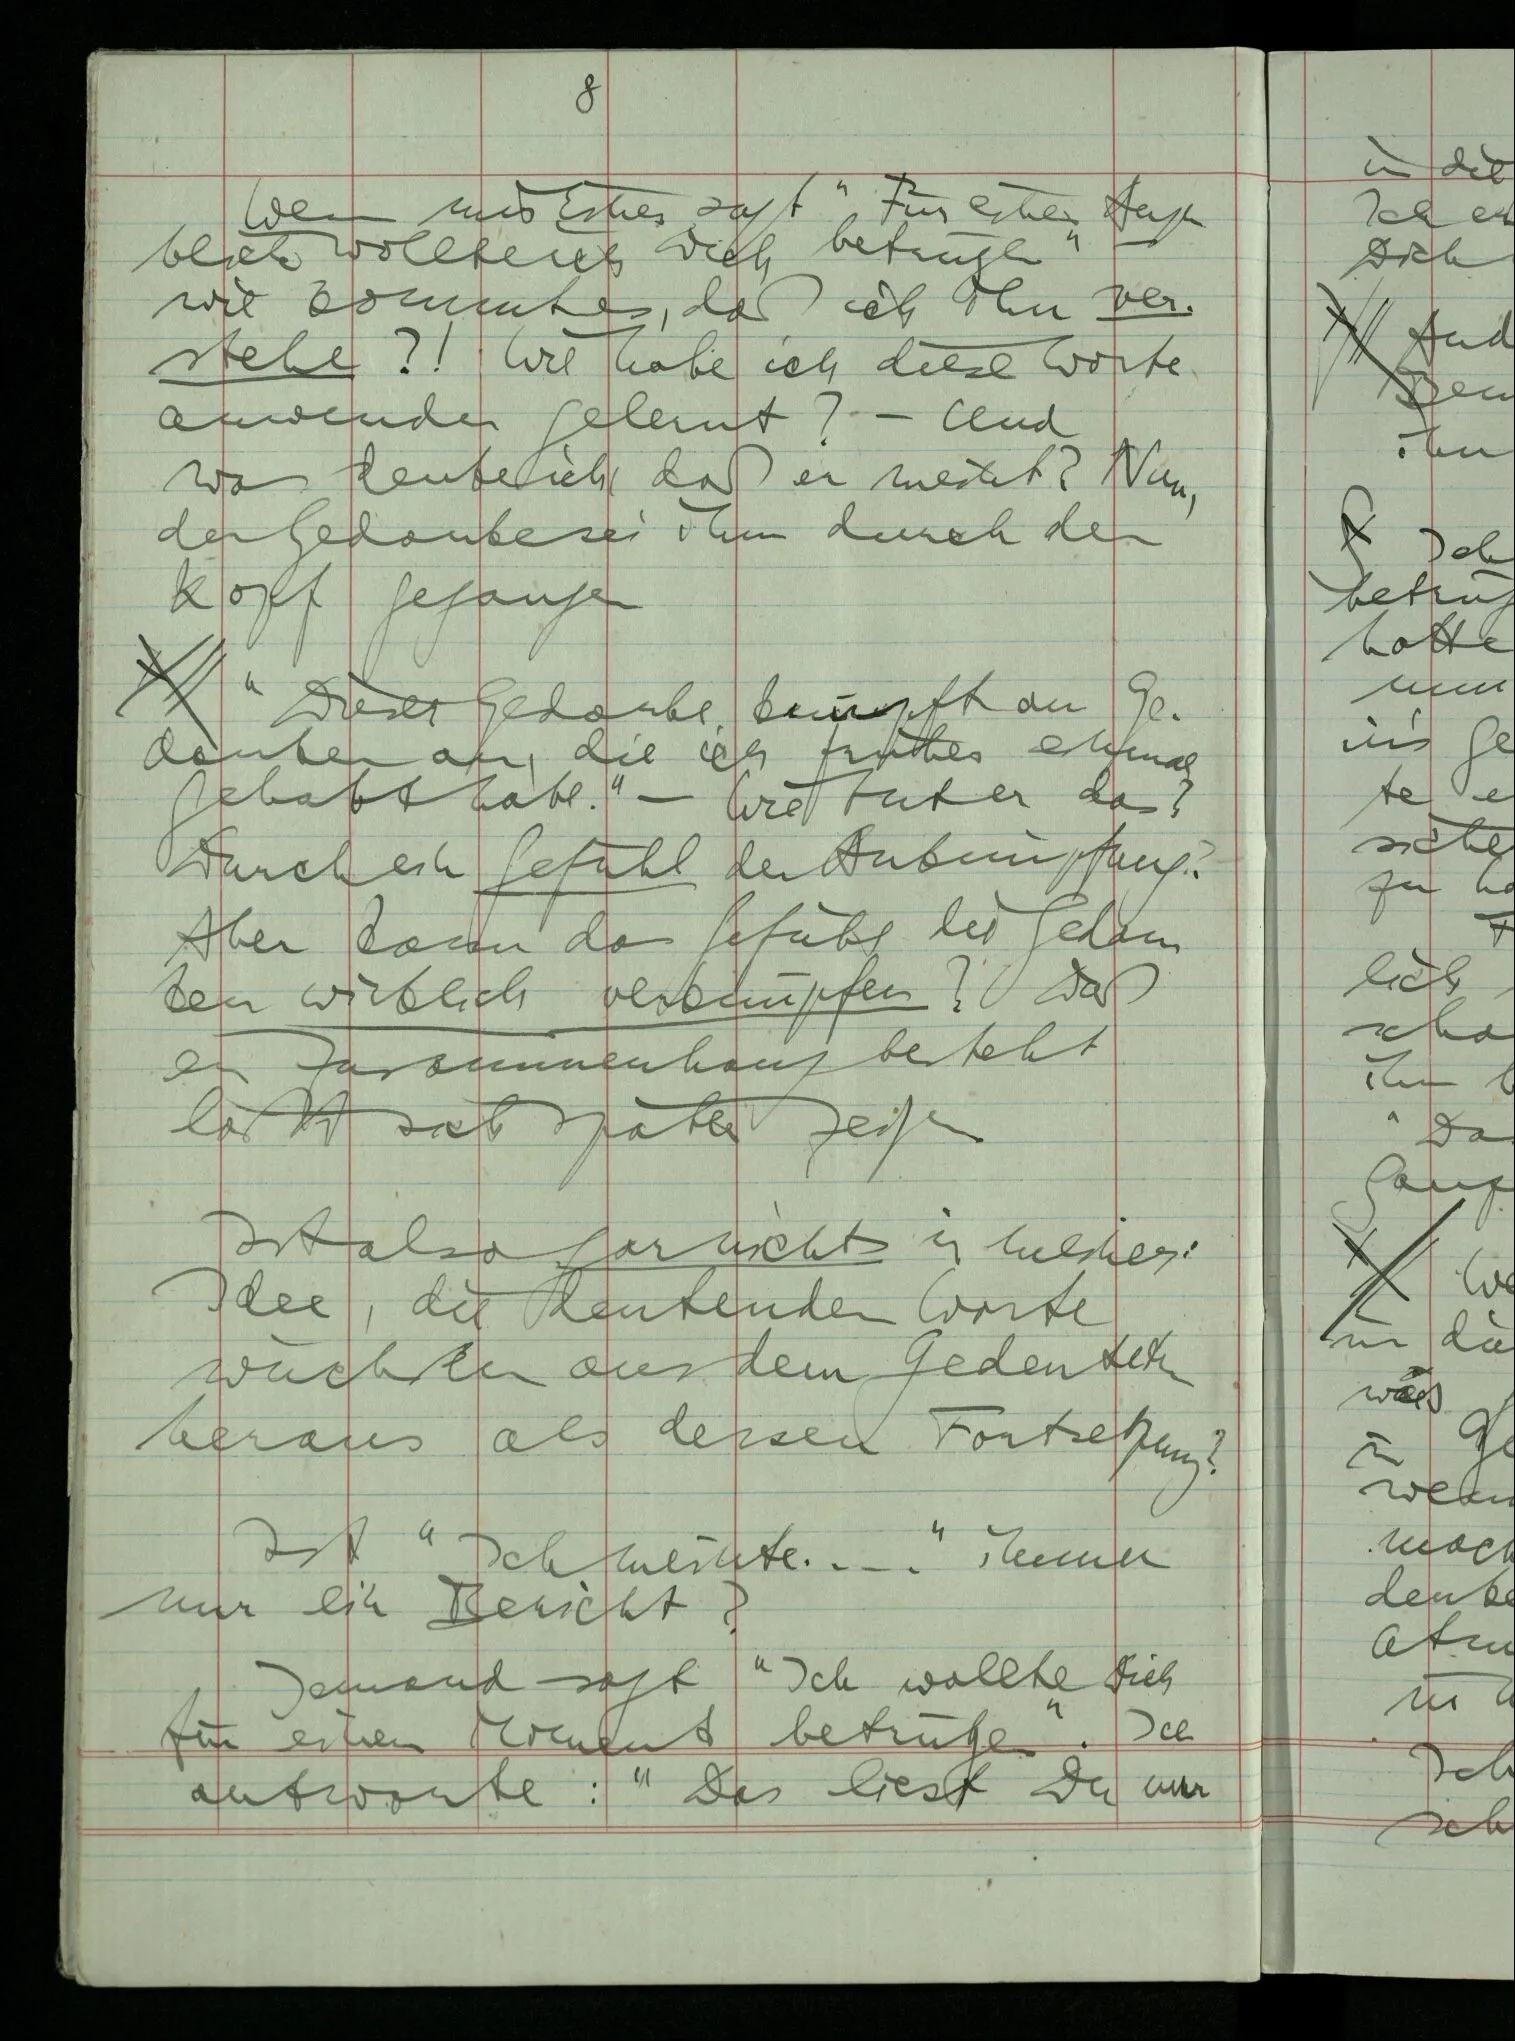 8
Wenn mir Einer sagt "Für einen Augen
blick wollte ich Dich betrügen" –
wie kommt es, daß ich ihn ver-
stehe?! Wie habe ich diese Worte
anwenden gelernt? – Und
was denke ich, daß er meint? Nun,
der Gedanke sei ihm durch den
Kopf gegangen
"Dieser Gedanke knüpft an Ge-
danken an, die ich früher einmal
gehabt habe." – Wie tut er das?
Durch ein Gefühl der Anknüpfung?
Aber kann das Gefühl die Gedan
ken wirklich verknüpfen? Daß
ein Zusammenhang besteht
läßt sich später zeigen
Ist also garnichts in meiner
Idee, die deutenden Worte
wüchsen aus dem Gedeuteten
heraus als dessen Fortsetzung?
Ist "Ich meinte...." immer
nur ein Bericht?
Jemand sagt "Ich wollte Dich
für einen Moment betrügen". Ich
antworte: "Das liest Du nur
in die
Ich
Dich
ihn
Ich
hatte
ge
te
lich
ihm
in